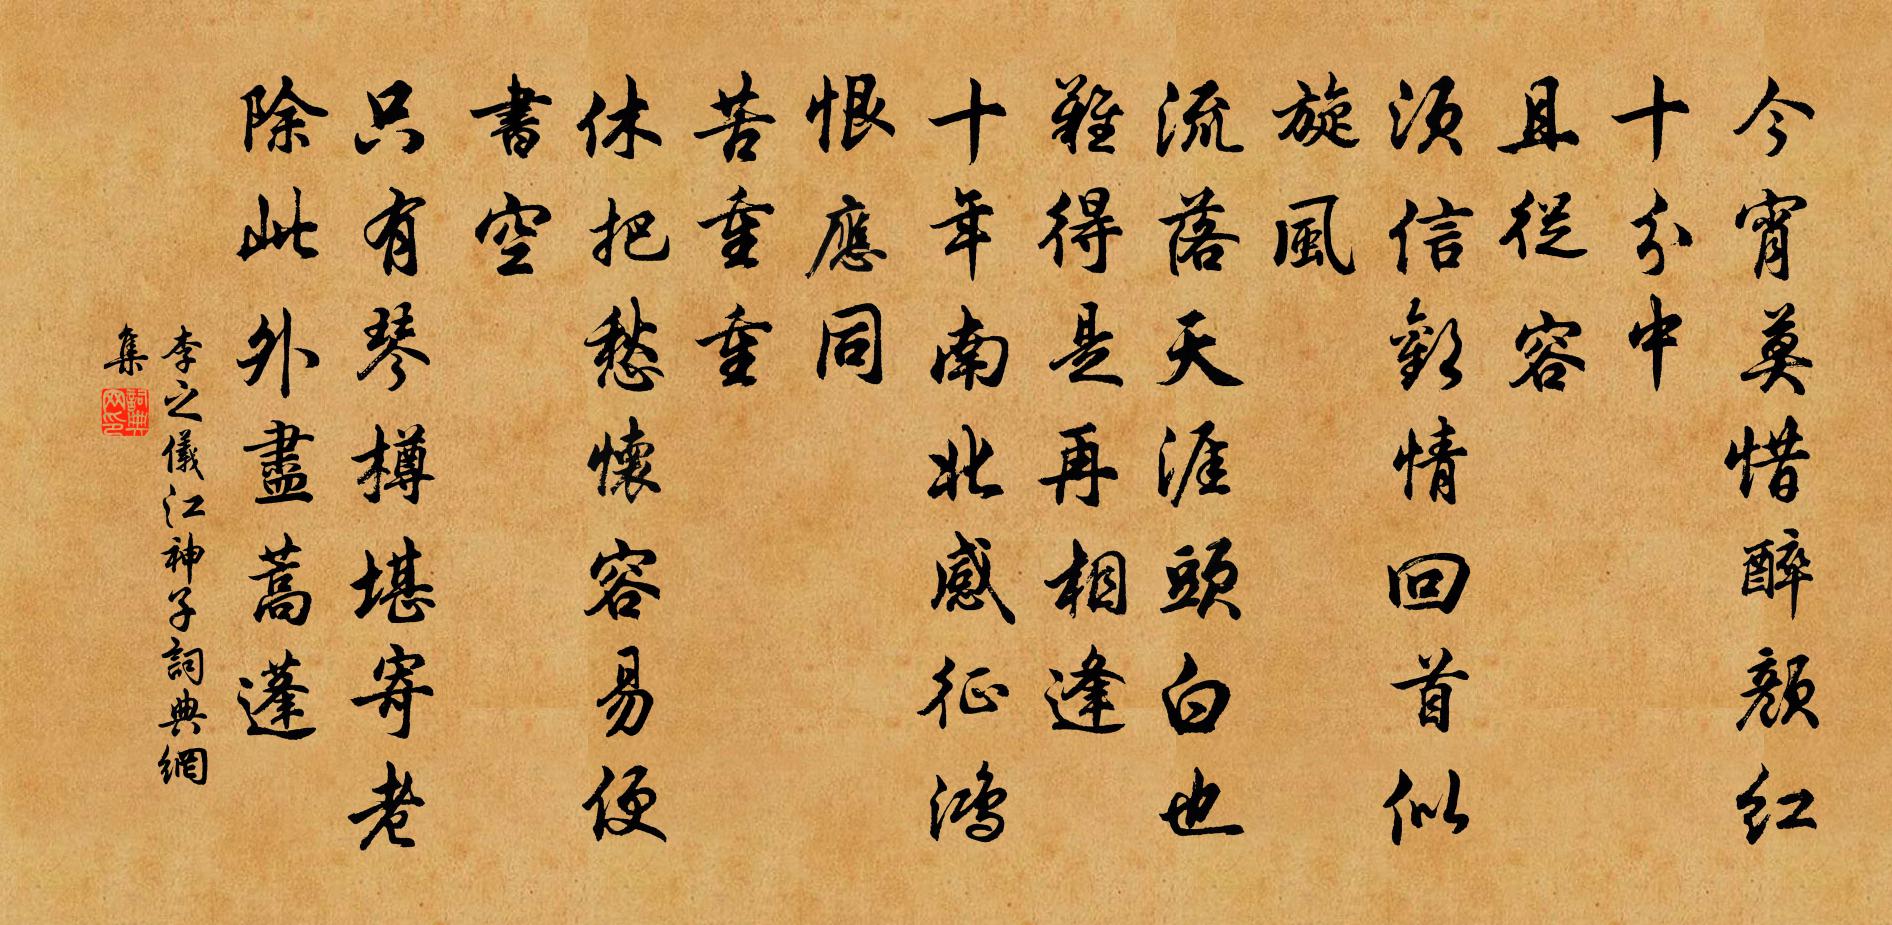 今宵莫惜醉顏紅
十分中
且從容
須信歡情回首似
旋風
流落天涯頭白也
難得是再相逢
十年南北感征鴻
恨應同
苦重重
休把愁懷容易便
書空
只有琴樽堪寄老
除此外盡蒿蓬
李之儀江神子詞典網
集
詞典
网印